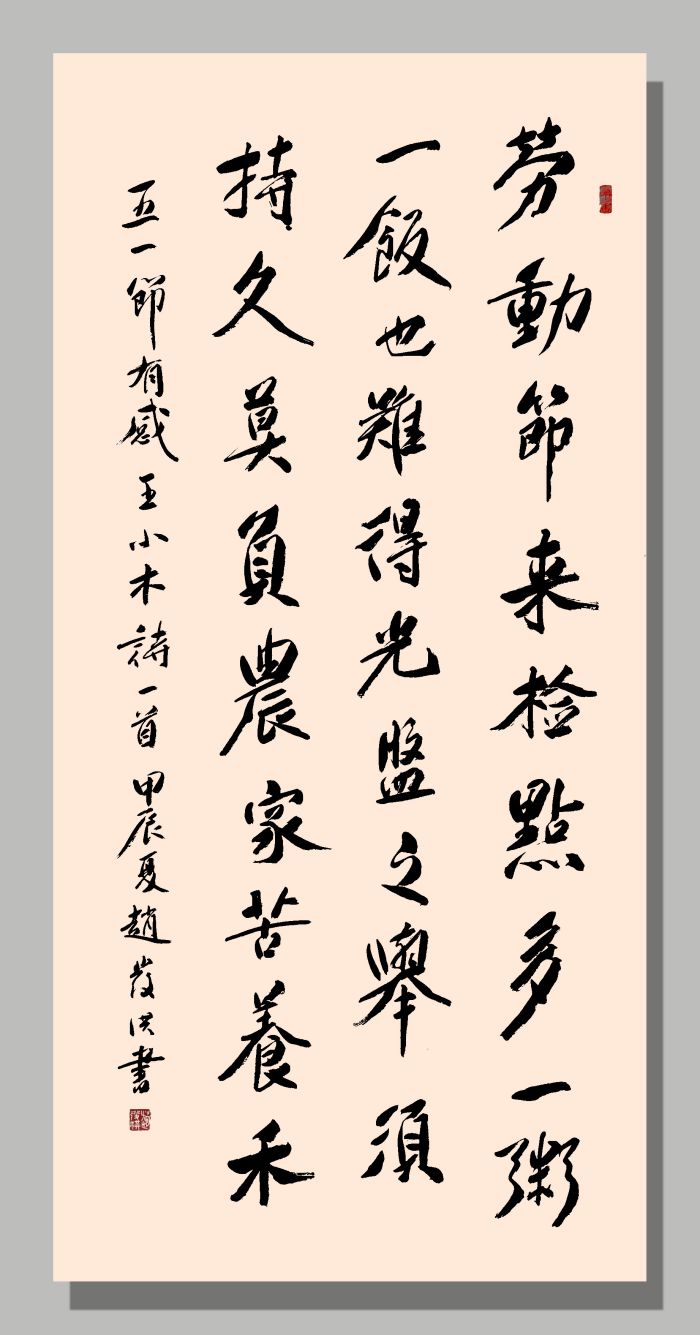 劳動節来检點多一粥
一飯也難得光盤之舉須
持久莫負農家苦養禾
五一節有感王小木詩一首甲辰夏趙發洪書